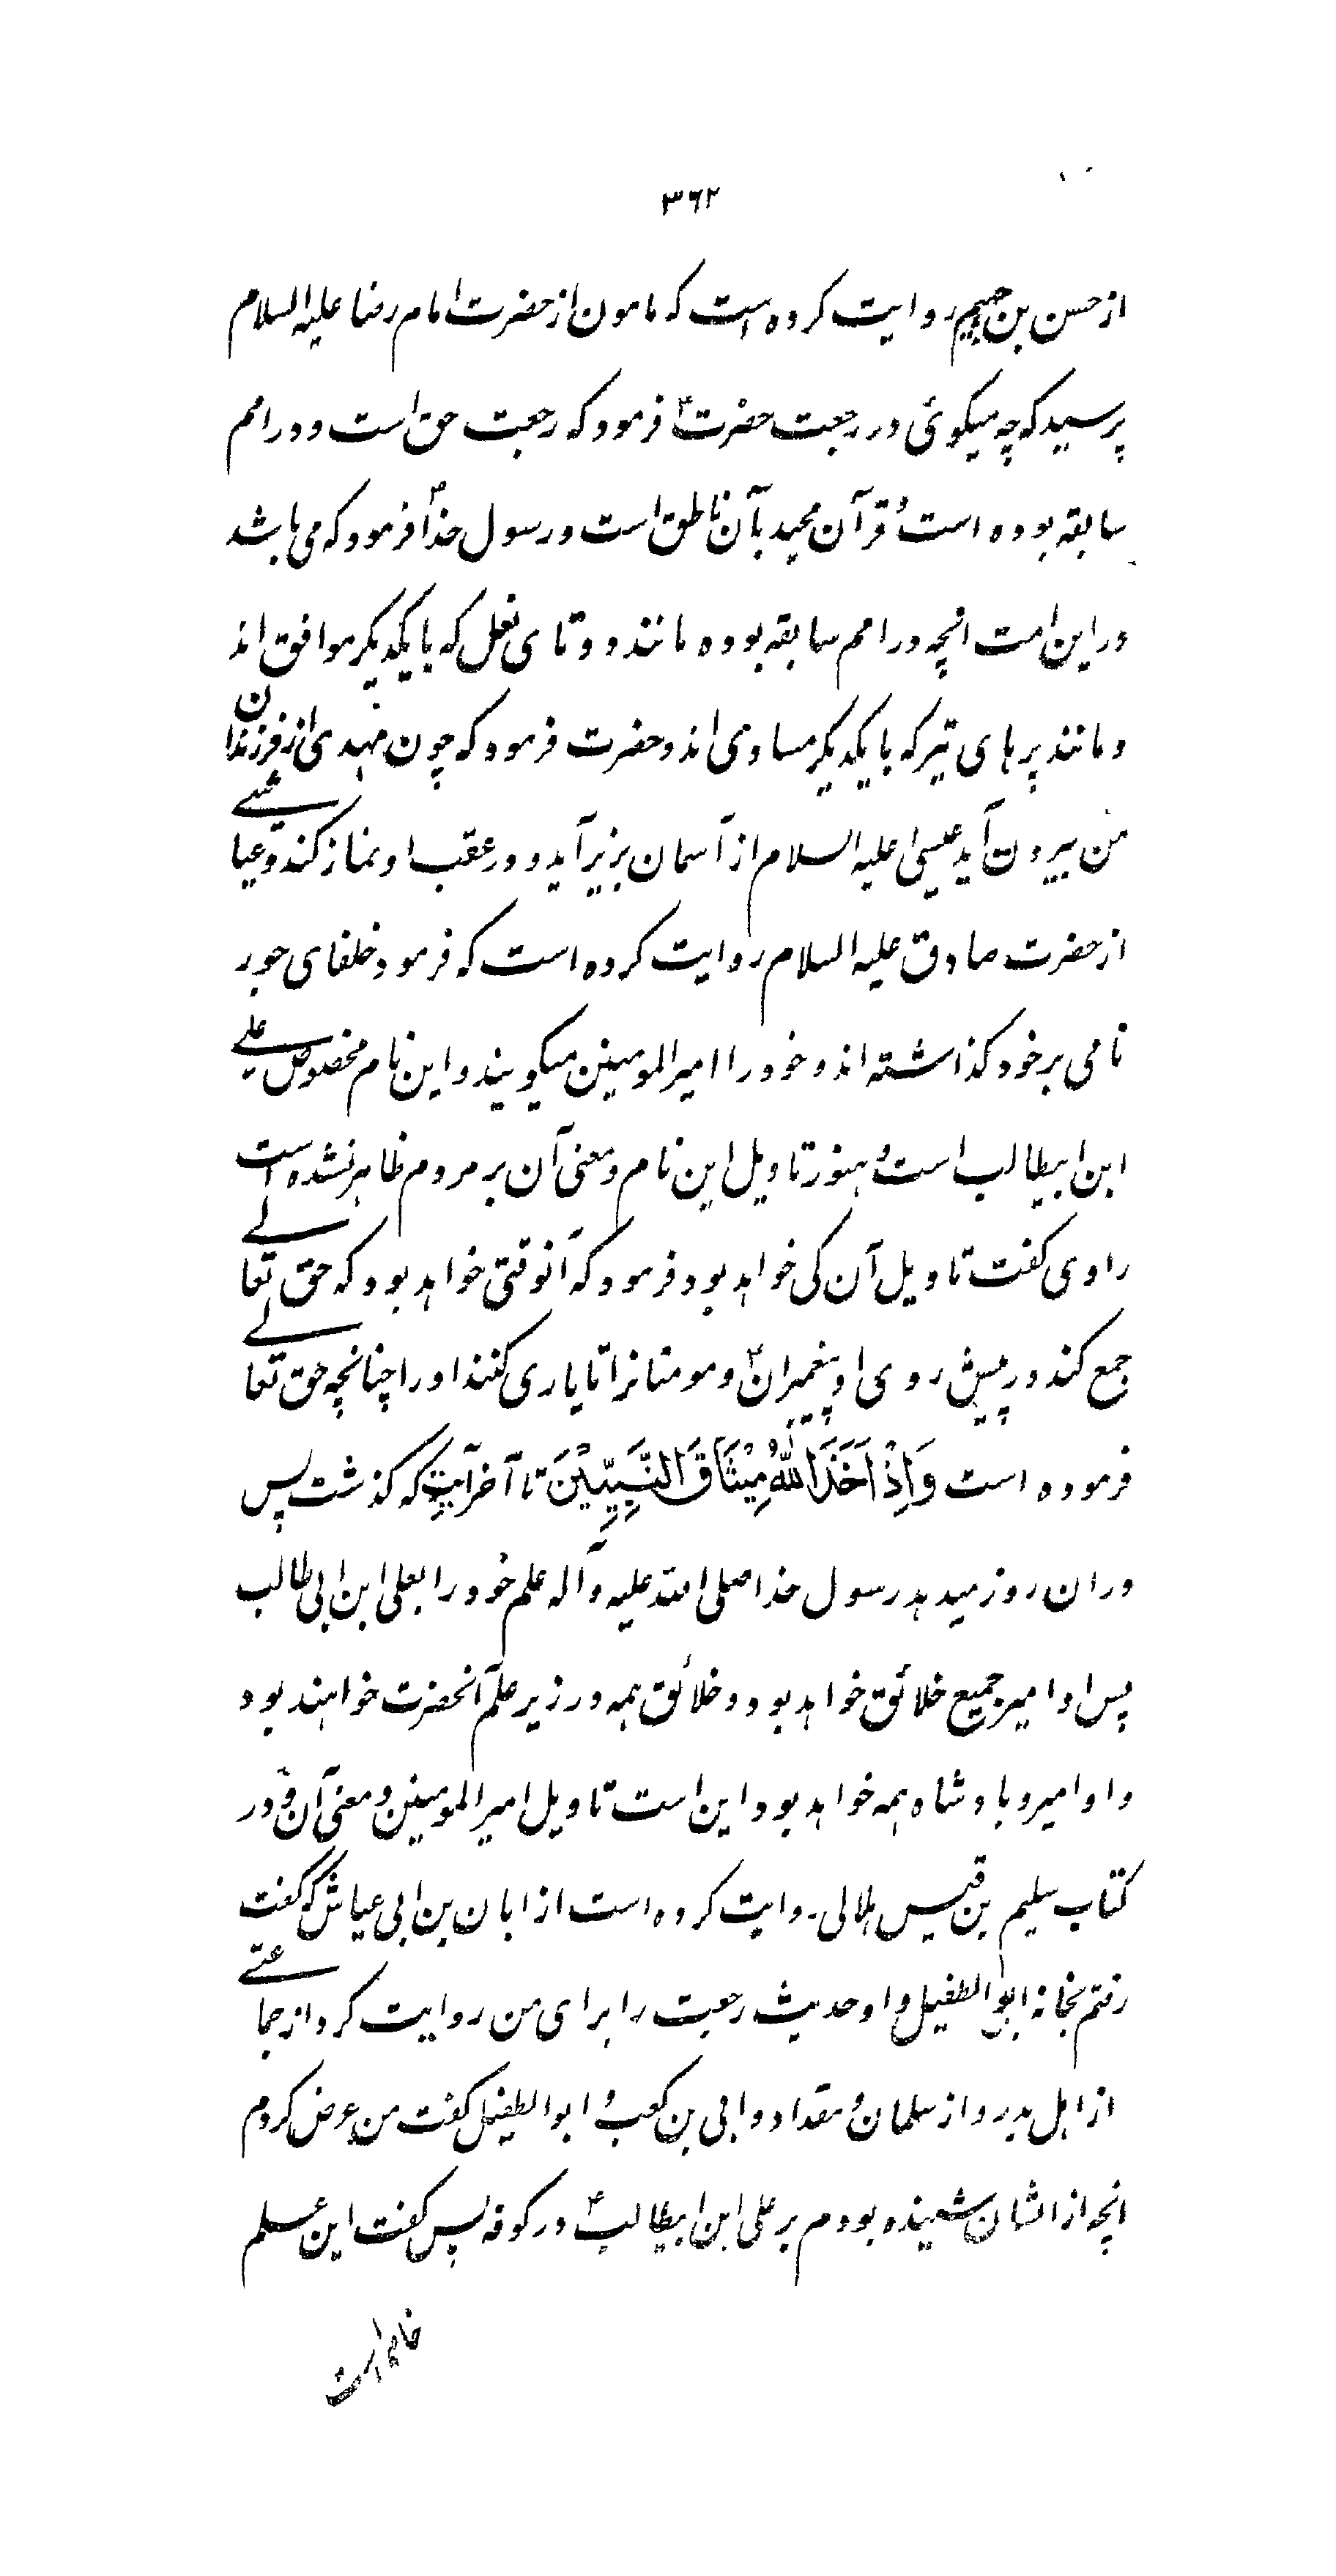 ۳۶۲
از حسن بن جهیم روایت کرده است که مامون از حضرت امام رضا علیه السلام
پرسید که چه میکوئی در رجعت حضرت؏ فرمود که رجعت حق است و در امم
سابقه بوده است و قرآن مجید بآن ناطق است و رسول خداؐ فرمود که می باشد
در این امت انچه در امم سابقه بوده مانند دو تای نعل که با یکدیکر موافق اند
و مانند پرهای تیر که با یکدیکر مساوی اند و حضرت فرمود که چون مهدی از فرزندان
من بیرون آید عیسی علیه السلام از آسمان بزیر آید و در عقب او نماز کند و عیاشی
از حضرت صادق علیه السلام روایت کرده است که فرمود خلفای جور
نامی بر خود کذاشته اند و خود را امیرالمومنین میکویند و این نام مخصوص علی
ابن ابیطالب است و هنوز تاویل این نام و معنی آن بر مردم ظاهر نشده است
راوی کفت تاویل آن کی خواهد بود فرمود که آنوقتی خواهد بود که حق تعالی
جمع کند در پیش روی او پیغمبران؏ و مومنانرا تا یاری کنند او را چنانچه حق تعالی
فرموده است وَاِذْ اَخَذَ اللّٰهُ مِیْثَاقَ النَّبِیِّیْنَ تا آخر آیت که کذشت پس
در ان روز میدهد رسول خدا صلی الله علیه و آله علم خود را بعلی ابن ابی طالب
پس او امیر جمیع خلائق خواهد بود و خلائق همه در زیر علم آنحضرت خواهند بود
و او امیر و بادشاه همه خواهد بود این است تاویل امیرالمومنین و معنی آن و در
کتاب سلیم بن قیس هلالی روایت کرده است از ابان بن ابی عیاش که کفت
رفتم بخانه ابوالطفیل و او حدیث رجعت را برای من روایت کرد از جماعتی
از اهل بدر و از سلمان و مقداد و ابی بن کعب و ابوالطفیل کفت من عرض کردم
انچه از ایشان شنیده بودم بر علی ابن ابیطالب؏ در کوفه پس کفت این علم